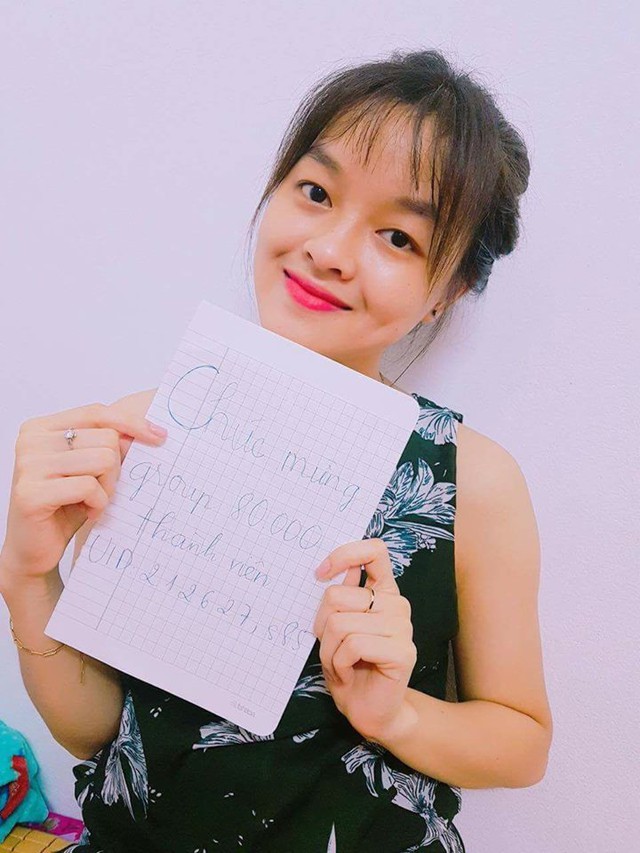 Chúc mừng
group 80.000
thành viên
UID: 212627,585